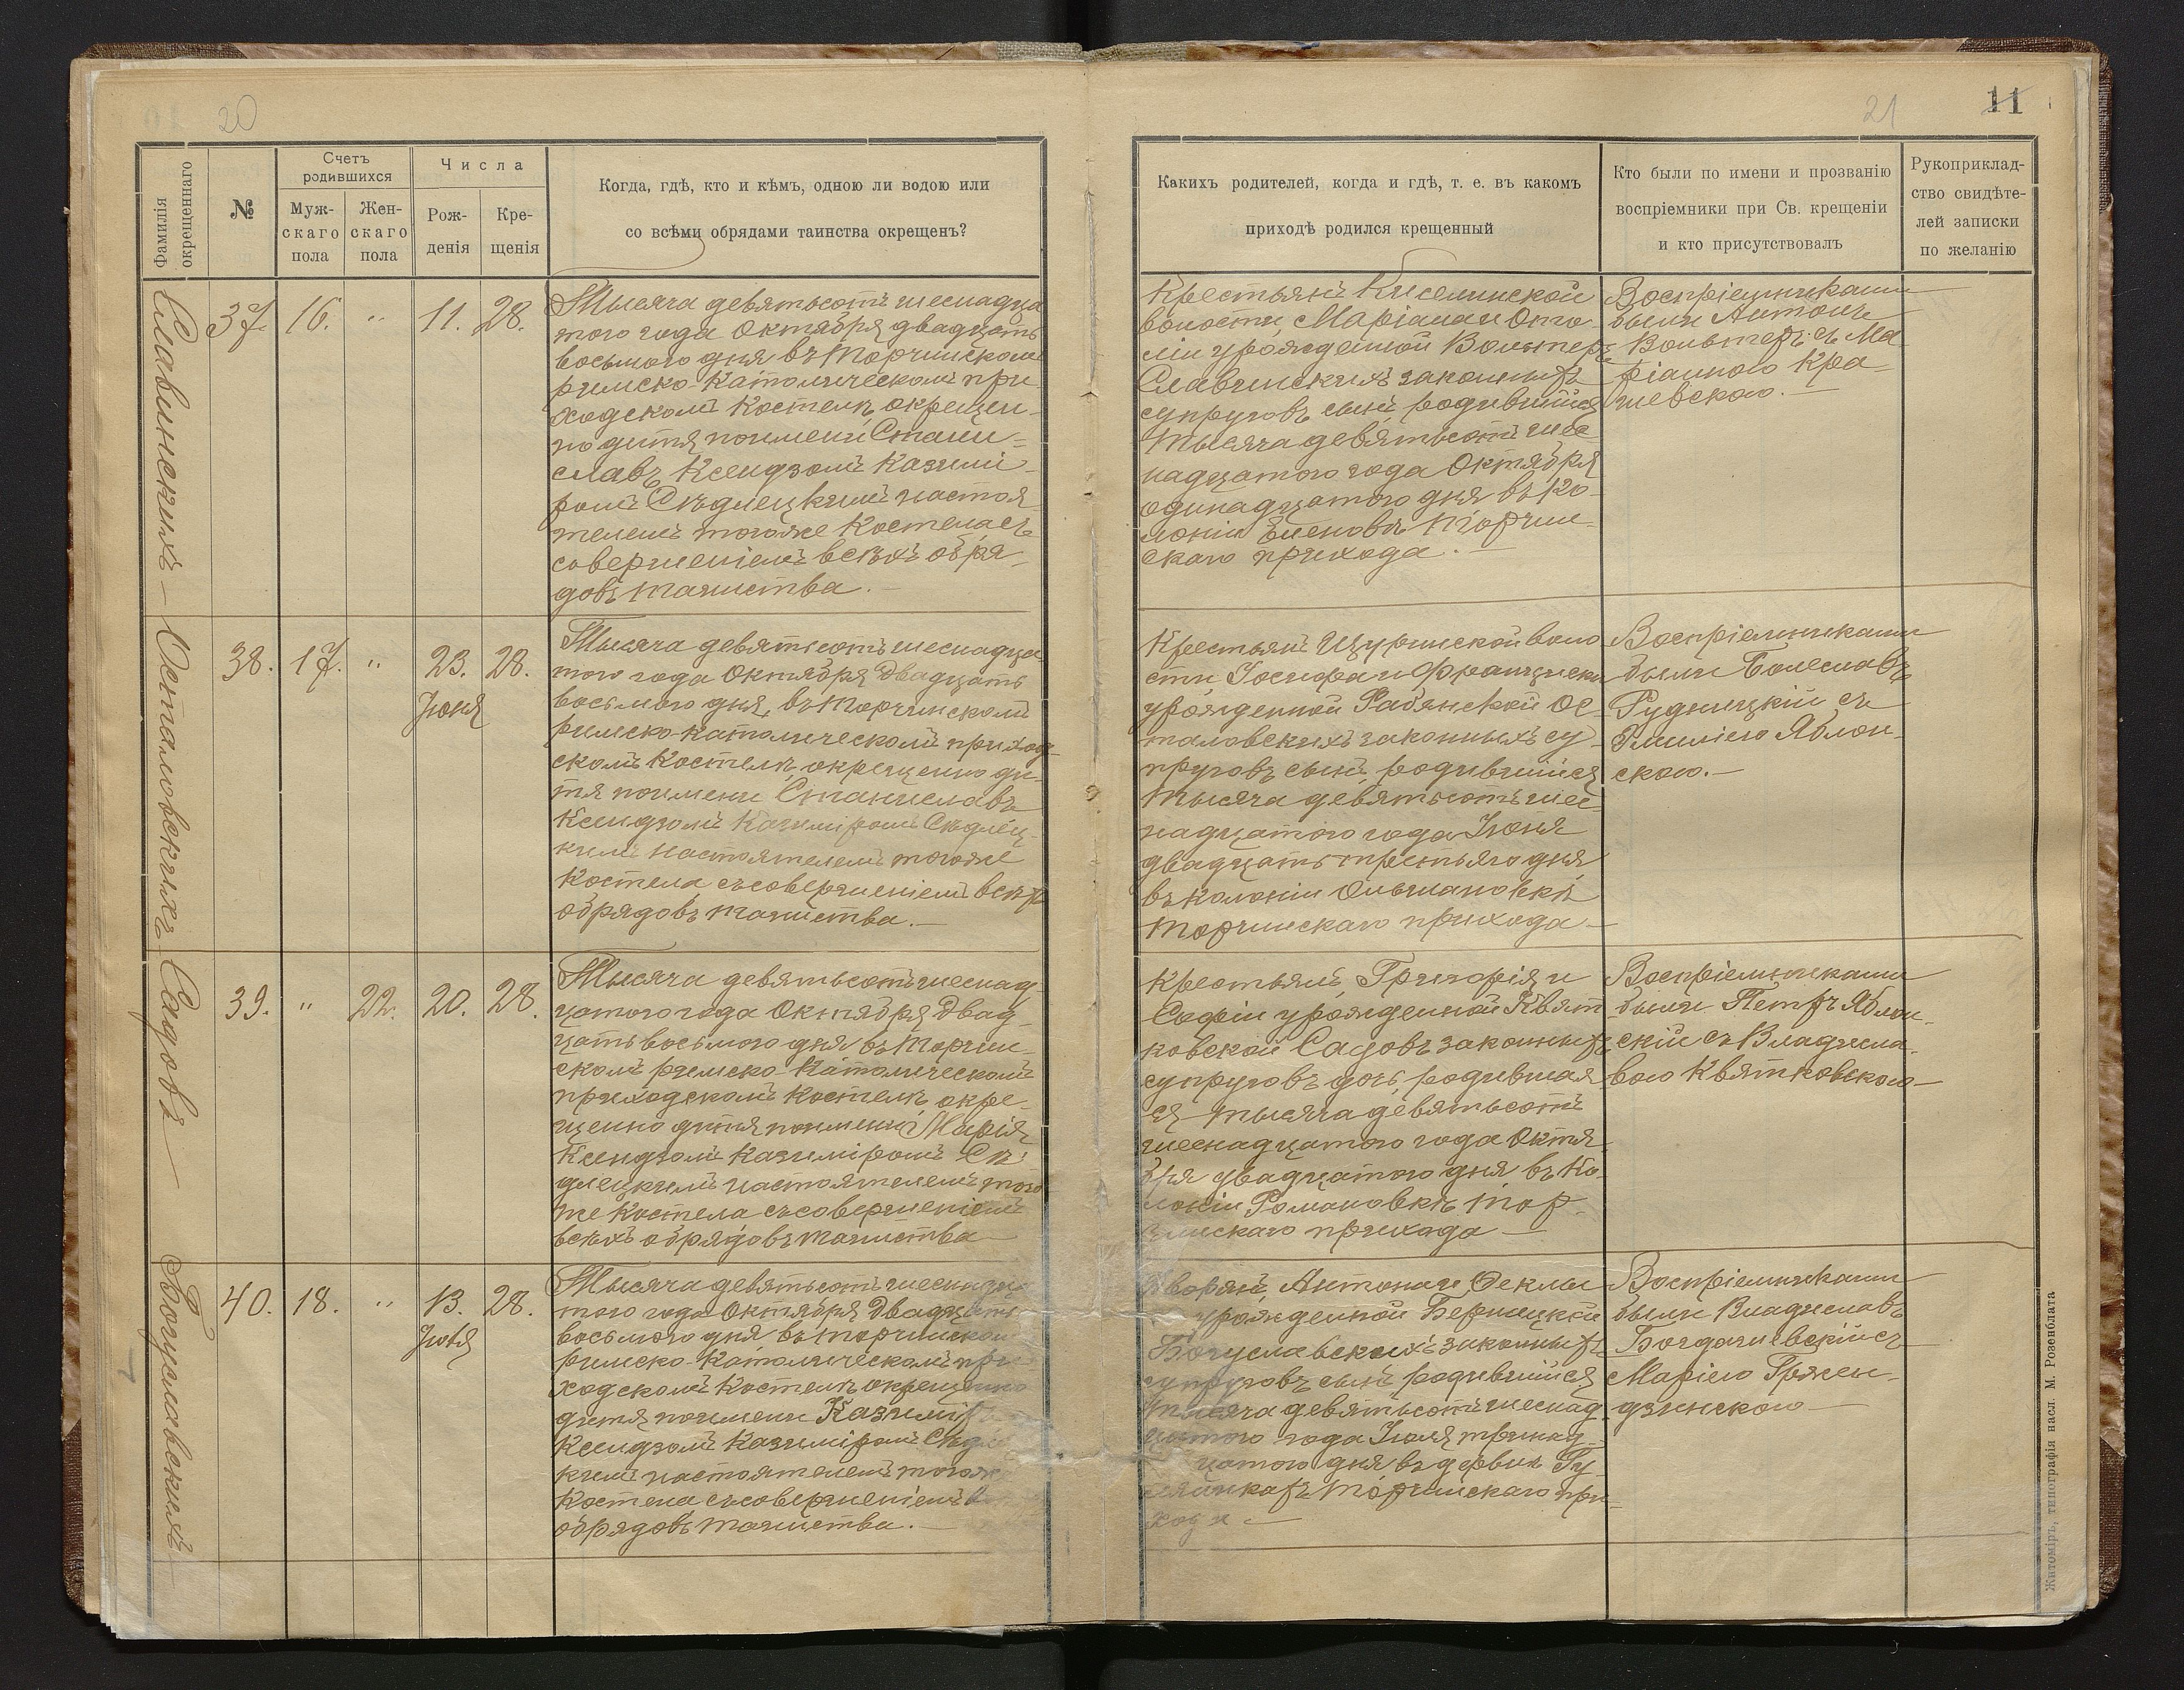 20
Фамилія окрещеннаго
№
Счетъ родившихся
Муж-
скаго
пола
Жен-
скаго
пола
Числа
Рож-
денія
Кре-
щенія
Когда, гдѣ, кто и кѣмъ, одною ли водою или
со всѣми обрядами таинства окрещенъ?
Славинскихъ –
37.
16.
"
11.
28.
Тысяча девятьсотъ шеснадца
того года Октября двадцать
восьмого дня въ Торчинскомъ
римско-Католическомъ при-
ходскомъ Костелѣ, окрещен-
но дитя поимени Стани-
славъ Ксендзомъ Казимі-
ромъ Сѣдлецкимъ настоя-
телемъ тогоже Костела, съ
совершеніемъ всѣхъ обря-
довъ таинства. –
Осталовскихъ
38.
17.
"
23.
Іюня
28.
Тысяча девятьсотъ шеснадца
того года Октября Двадцать
восьмого дня, въ Торчинскомъ
римско-католическомъ приход-
скомъ Костелѣ, окрещенно ди-
тя поимени Станиславъ
Ксендзомъ Казиміромъ Сѣдлец-
кимъ настоятелемъ тогоже
Костела съ совершеніемъ всѣхъ
обрядовъ таинства. –
Садовъ –
39.
"
22.
20.
28.
Тысяча девятьсотъ шеснад-
цатого года Октября Двад-
цать восьмого дня въ Торчин-
скомъ римско-Католическомъ
приходскомъ Костелѣ, окре-
щенно дитя поимени Марія
Ксендзомъ Казиміромъ Сѣ-
длецкимъ настоятелемъ того
же Костела съ совершеніемъ
всѣхъ обрядовъ таинства –
Богуславскихъ
40.
18.
"
13.
Іюля
28.
Тысяча девятьсотъ шеснадца
того года Октября Двадцать
восьмого дня, въ Торчинскомъ
римско-Католическомъ при-
ходскомъ Костелѣ окрещенно
дитя поимени Казимі
Ксендзомъ Казиміромъ Сѣдле
кимъ настоятелемъ тогоже
Костела съ совершеніемъ
обрядовъ таинства. –
21
11
Какихъ родителей, когда и гдѣ, т. е. въ какомъ
приходѣ родился крещенный
Кто были по имени и прозванію
воспріемники при Св. крещеніи
и кто присутствовалъ
Рукоприклад-
ство свидѣте-
лей записки
по желанію
Крестьянъ Киселинской
волости, Маріана и Ото-
ліи урожденной Вольтеръ
Славинскихъ законныхъ
супруговъ сынъ, родившійся
тысяча девятьсотъ шес-
надцатого года Октября
одинадцатого дня въ Ко-
лоніи Еленовъ Торчин-
скаго прихода. –
Воспріемниками
были Антонъ
Вольтеръ съ Ма-
ріанною Кра-
шевскою. –
Крестьянъ Щуринской воло
сти, Іосифа и Францишки
урожденной Рабянской Ос-
таловскихъ законныхъ су-
пруговъ сынъ, родившійся
тысяча девятьсотъ шес-
надцатого года Іюня
двадцать третьяго дня
въ колоніи Ольшановкѣ
Торчинскаго прихода –
Воспріемниками
были Болеславъ
Рудницкій съ
Эмиліею Яблон-
скою. –
Крестьянъ, Григорія и
Софіи урожденной Квят-
ковской Садовъ законныхъ
супруговъ дочь, родившая
ся тысяча девятьсотъ
шеснадцатого года Октя-
бря двадцатого дня въ Ко-
лоніи Романовкѣ Тор-
чинскаго прихода –
Воспріемниками
были Петръ Яблон-
скій съ Владисла-
вою Квятковскою –
Дворянъ, Антона и Феклы
урожденной Берницкой
Богуславскихъ законныхъ
супруговъ сынъ родившійся
тысяча девятьсотъ шеснад-
цатого года Іюля тринад-
цатого дня въ дервнѣ
Торчинскаго при-
хода –
Воспріемниками
были Владиславъ
Богдашевскій съ
Маріею Гржен-
дзинскою –
Житоміръ, типографія насл. М. Розенблата